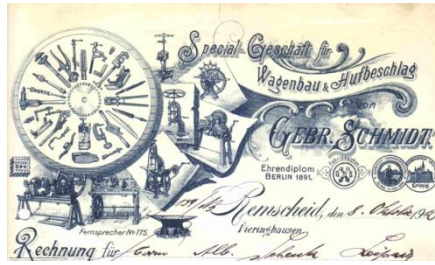 Special-Geschäft für
Wagenbau & Hufbeschlag
von
GEBR. SCHMIDT.
Ehrendiplom
BERLIN 1891.
Fernsprecher No 775.
Remscheid, den 8. Oktober
Vieringhausen.
Rechnung für Herrn Alb. Schenk Leipzig